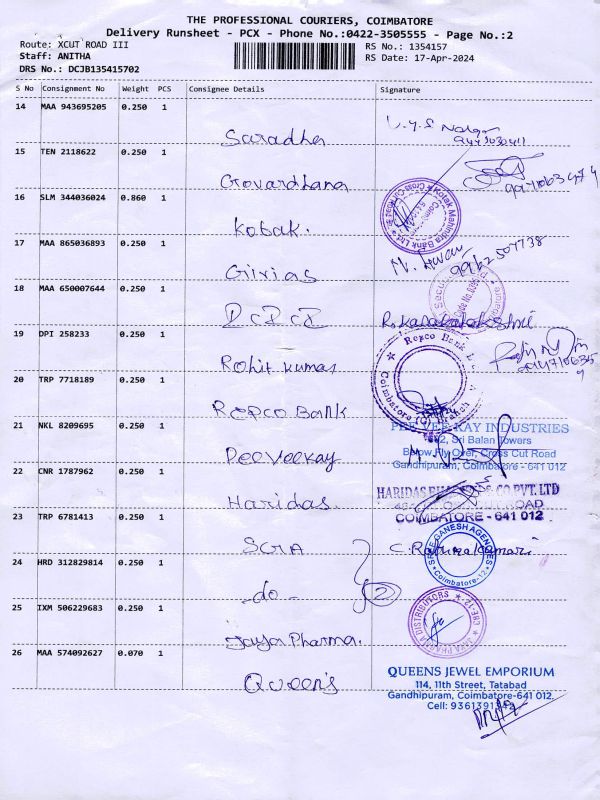 THE PROFESSIONAL COURIERS, COIMBATORE
Delivery Runsheet - PCX - Phone No.:0422-3505555 - Page No.:2
Route: XCUT ROAD III
RS No.: 1354157
Staff: ANITHA
RS Date: 17-Apr-2024
DRS No.: DCJB135415702
S No Consignment No Weight PCS Consignee Details Signature
14 MAA 943695205 0.250 1
Saradha
15 TEN 2118622 0.250 1
Govardhana
16 SLM 344036024 0.860 1
Kotak Mahindra Bank Ltd
Kotak.
17 MAA 865036893 0.250 1
9962507738
Girias
18 MAA 650007644 0.250 1
DCDCI
19 DPI 258233 0.250 1
Repco Bank
Coimbatore
Rohit kumar
20 TRP 7718189 0.250 1
Repco Bank
21 NKL 8209695 0.250 1
PEE VEE KAY INDUSTRIES
Sri Balan Towers
Below Fly Over, Cross Cut Road
Gandhipuram, Coimbatore - 641 012
Peeveekay
22 CNR 1787962 0.250 1
HARIDAS CO PVT. LTD
ROAD
COIMBATORE - 641 012
Haridas
23 TRP 6781413 0.250 1
SGA
C. Rathnakumari
SREE GANESH AGENCIES
Coimbatore-12
24 HRD 312829814 0.250 1
-do-
2
25 IXM 506229683 0.250 1
JAYA PHARMA DISTRIBUTORS
CBE-12
Jaya Pharma.
26 MAA 574092627 0.070 1
Queen's
QUEENS JEWEL EMPORIUM
114, 11th Street, Tatabad
Gandhipuram, Coimbatore-641 012.
Cell: